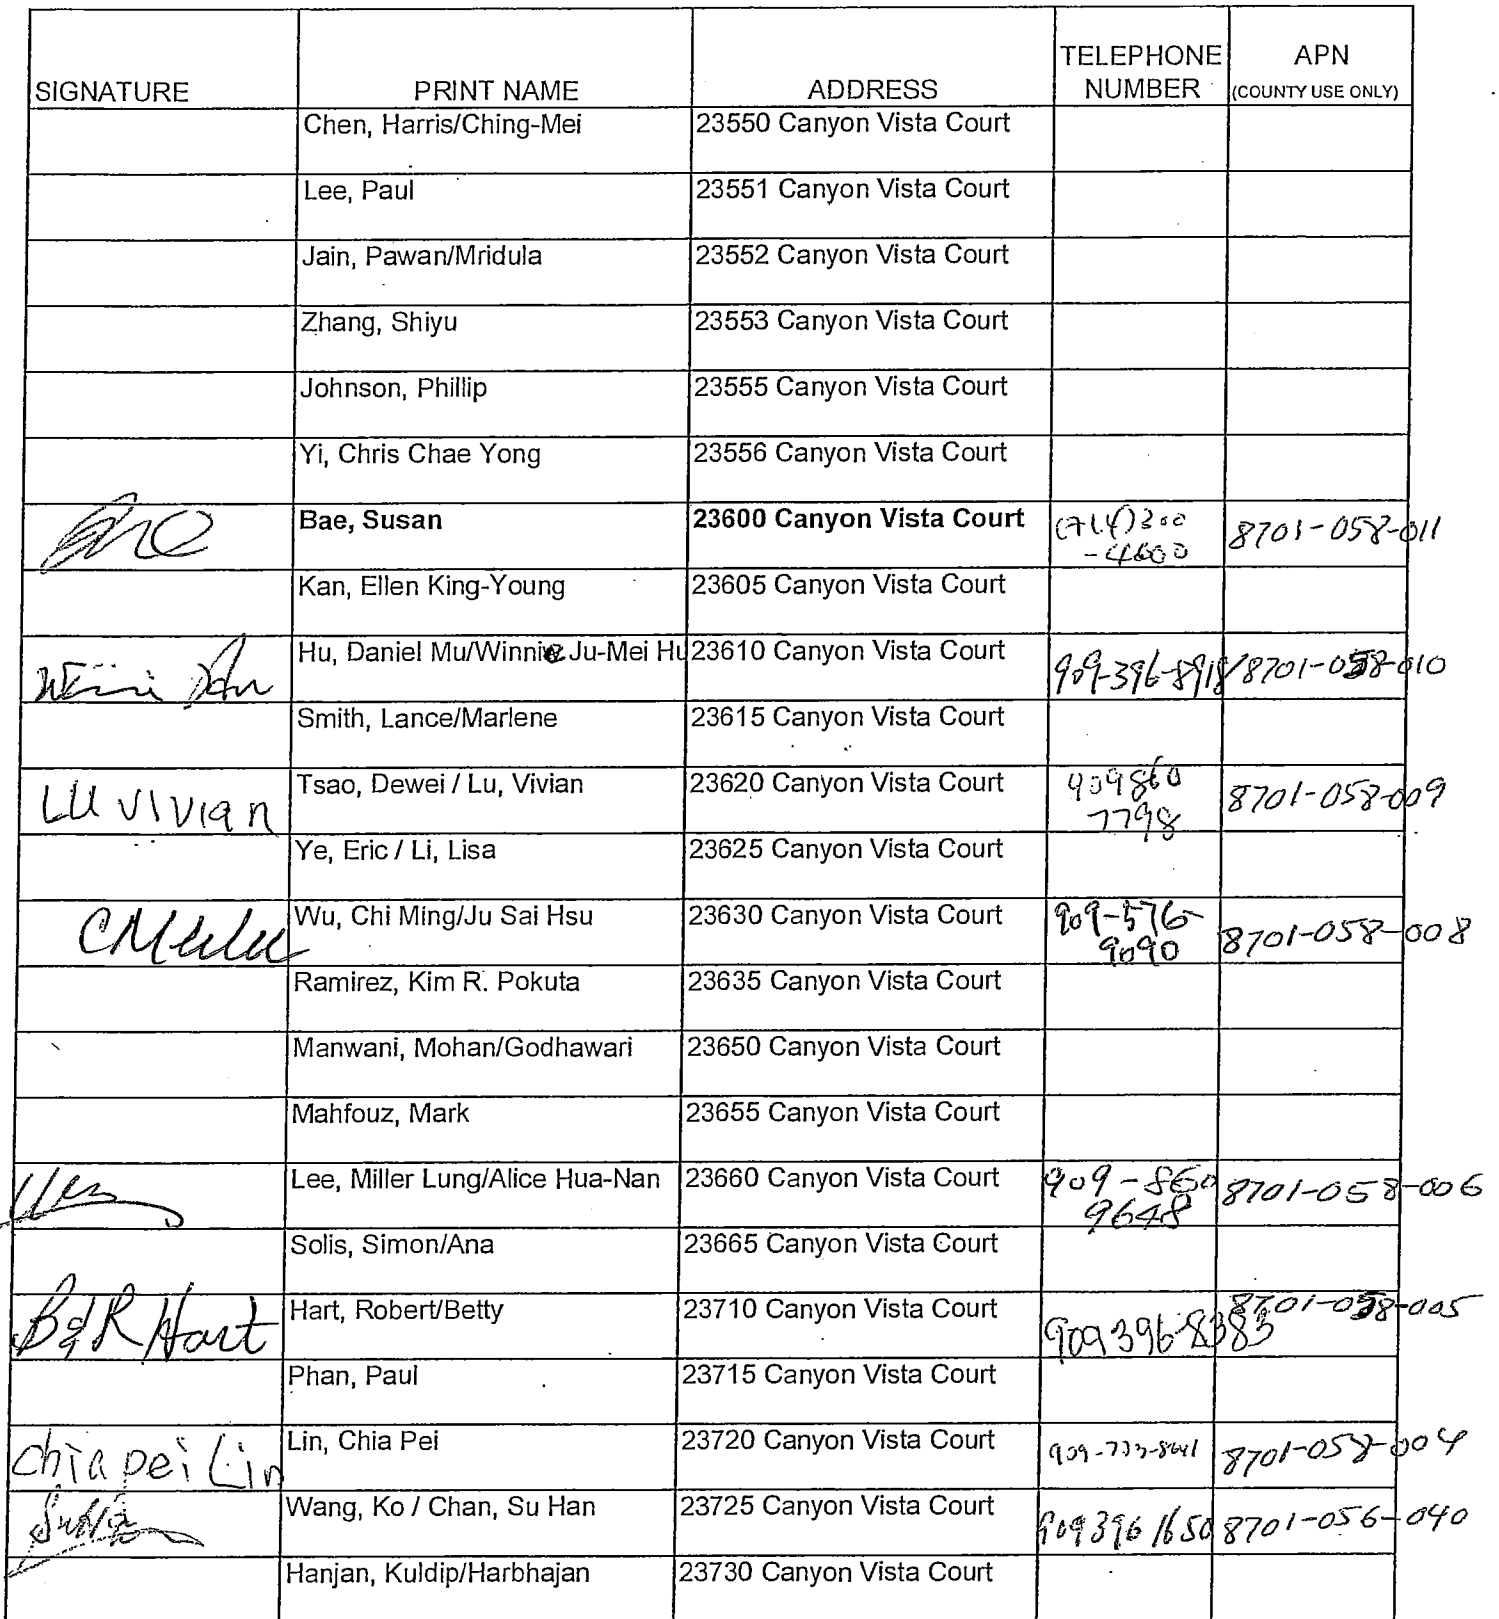 SIGNATURE PRINT NAME ADDRESS TELEPHONE NUMBER APN (COUNTY USE ONLY)
Chen, Harris/Ching-Mei 23550 Canyon Vista Court
Lee, Paul 23551 Canyon Vista Court
Jain, Pawan/Mridula 23552 Canyon Vista Court
Zhang, Shiyu 23553 Canyon Vista Court
Johnson, Phillip 23555 Canyon Vista Court
Yi, Chris Chae Yong 23556 Canyon Vista Court
Bae, Susan 23600 Canyon Vista Court (714) 300 8701-058-011
-4600
Kan, Ellen King-Young 23605 Canyon Vista Court
Hu, Daniel Mu/Winnie Ju-Mei Hu 23610 Canyon Vista Court 909-396-8918 8701-058-010
Smith, Lance/Marlene 23615 Canyon Vista Court
LU VIVIAN Tsao, Dewei / Lu, Vivian 23620 Canyon Vista Court 909 860 8701-058-009
7798
Ye, Eric / Li, Lisa 23625 Canyon Vista Court
Wu, Chi Ming/Ju Sai Hsu 23630 Canyon Vista Court 909-576- 8701-058-008
9090
Ramirez, Kim R. Pokuta 23635 Canyon Vista Court
Manwani, Mohan/Godhawari 23650 Canyon Vista Court
Mahfouz, Mark 23655 Canyon Vista Court
Lee, Miller Lung/Alice Hua-Nan 23660 Canyon Vista Court 909-860 8701-058-006
9648
Solis, Simon/Ana 23665 Canyon Vista Court
B & R Hart Hart, Robert/Betty 23710 Canyon Vista Court 909 396-8383 8701-058-005
Phan, Paul 23715 Canyon Vista Court
Chia pei Lin Lin, Chia Pei 23720 Canyon Vista Court 909-733-8641 8701-058-004
Wang, Ko / Chan, Su Han 23725 Canyon Vista Court 909 396 1650 8701-056-040
Hanjan, Kuldip/Harbhajan 23730 Canyon Vista Court